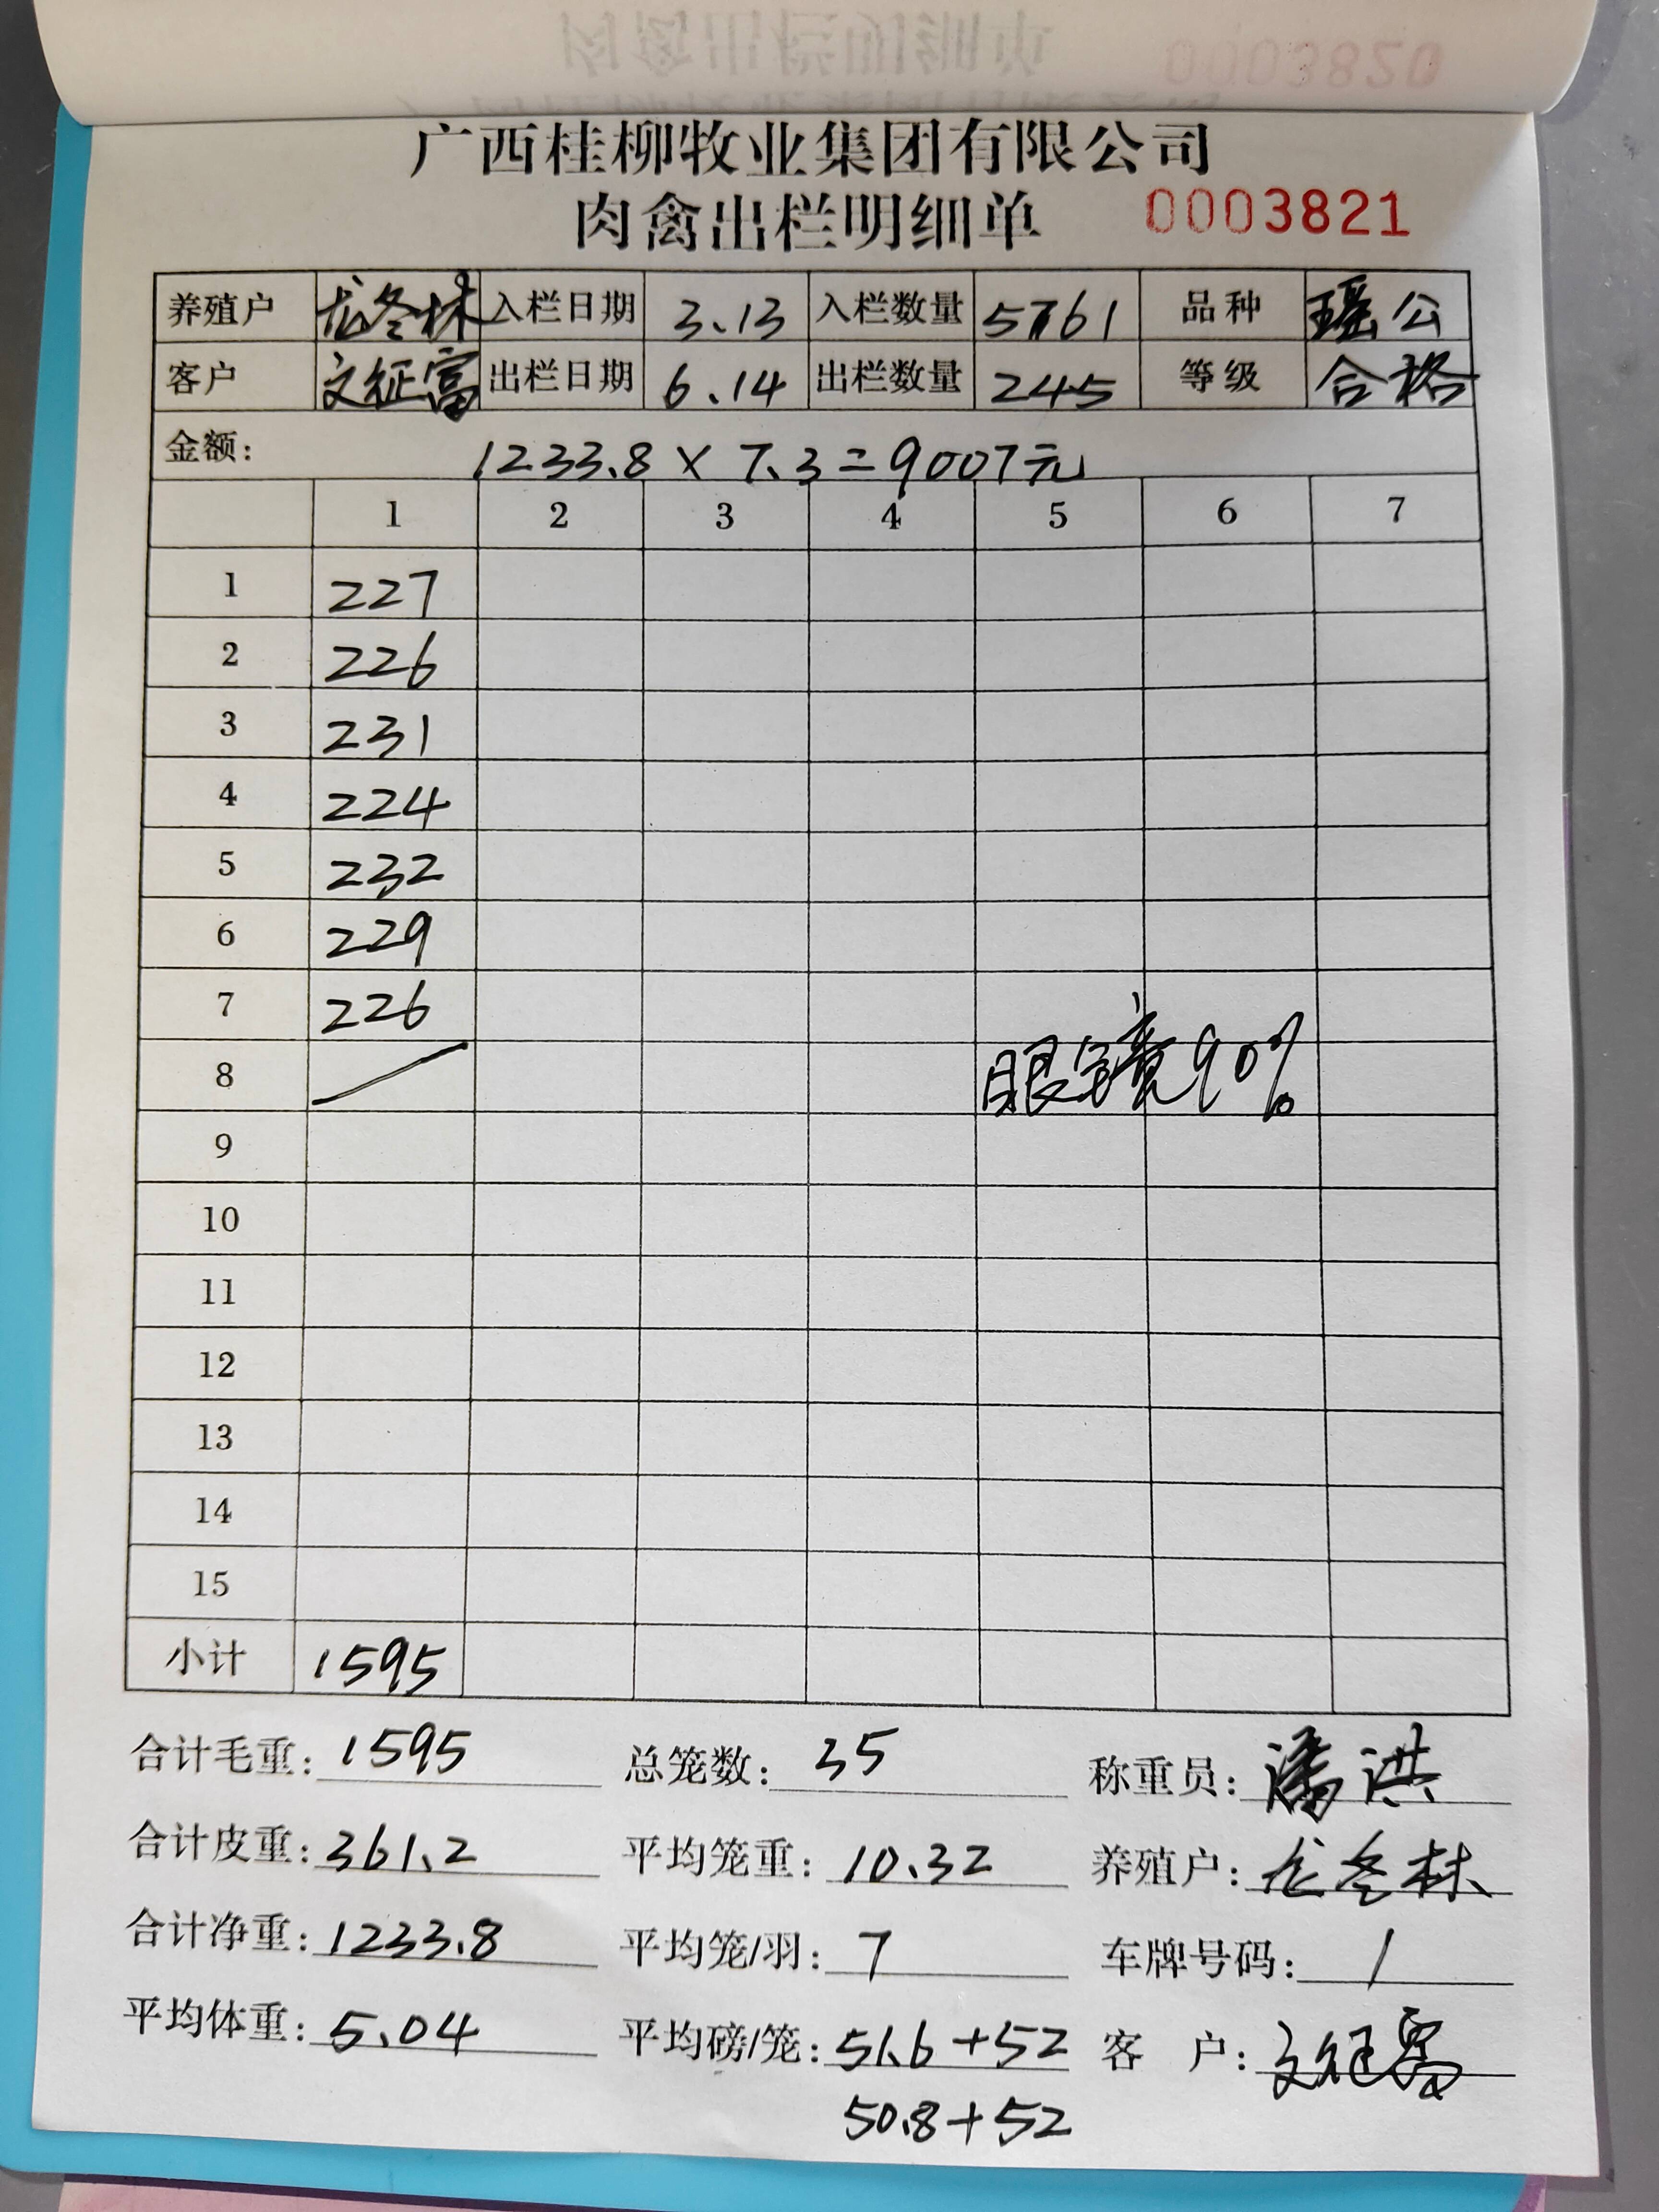 广西桂柳牧业集团有限公司
肉禽出栏明细单 0003821
养殖户 龙冬林 入栏日期 3.13 入栏数量 5761 品种 瑶公
客户 文征富 出栏日期 6.14 出栏数量 245 等级 合格
金额: 1233.8 × 7.3 = 9007元
1 2 3 4 5 6 7
1 227
2 226
3 231
4 224
5 232
6 229
7 226
8 眼镜90%
9
10
11
12
13
14
15
小计 1595
合计毛重: 1595 总笼数: 35 称重员: 潘洪
合计皮重: 361.2 平均笼重: 10.32 养殖户: 龙冬林
合计净重: 1233.8 平均笼/羽: 7 车牌号码: /
平均体重: 5.04 平均磅/笼: 51.6+52 客 户: 文征富
50.8+52